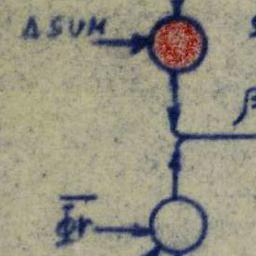 Δ SUM
β
Φ̅r̅